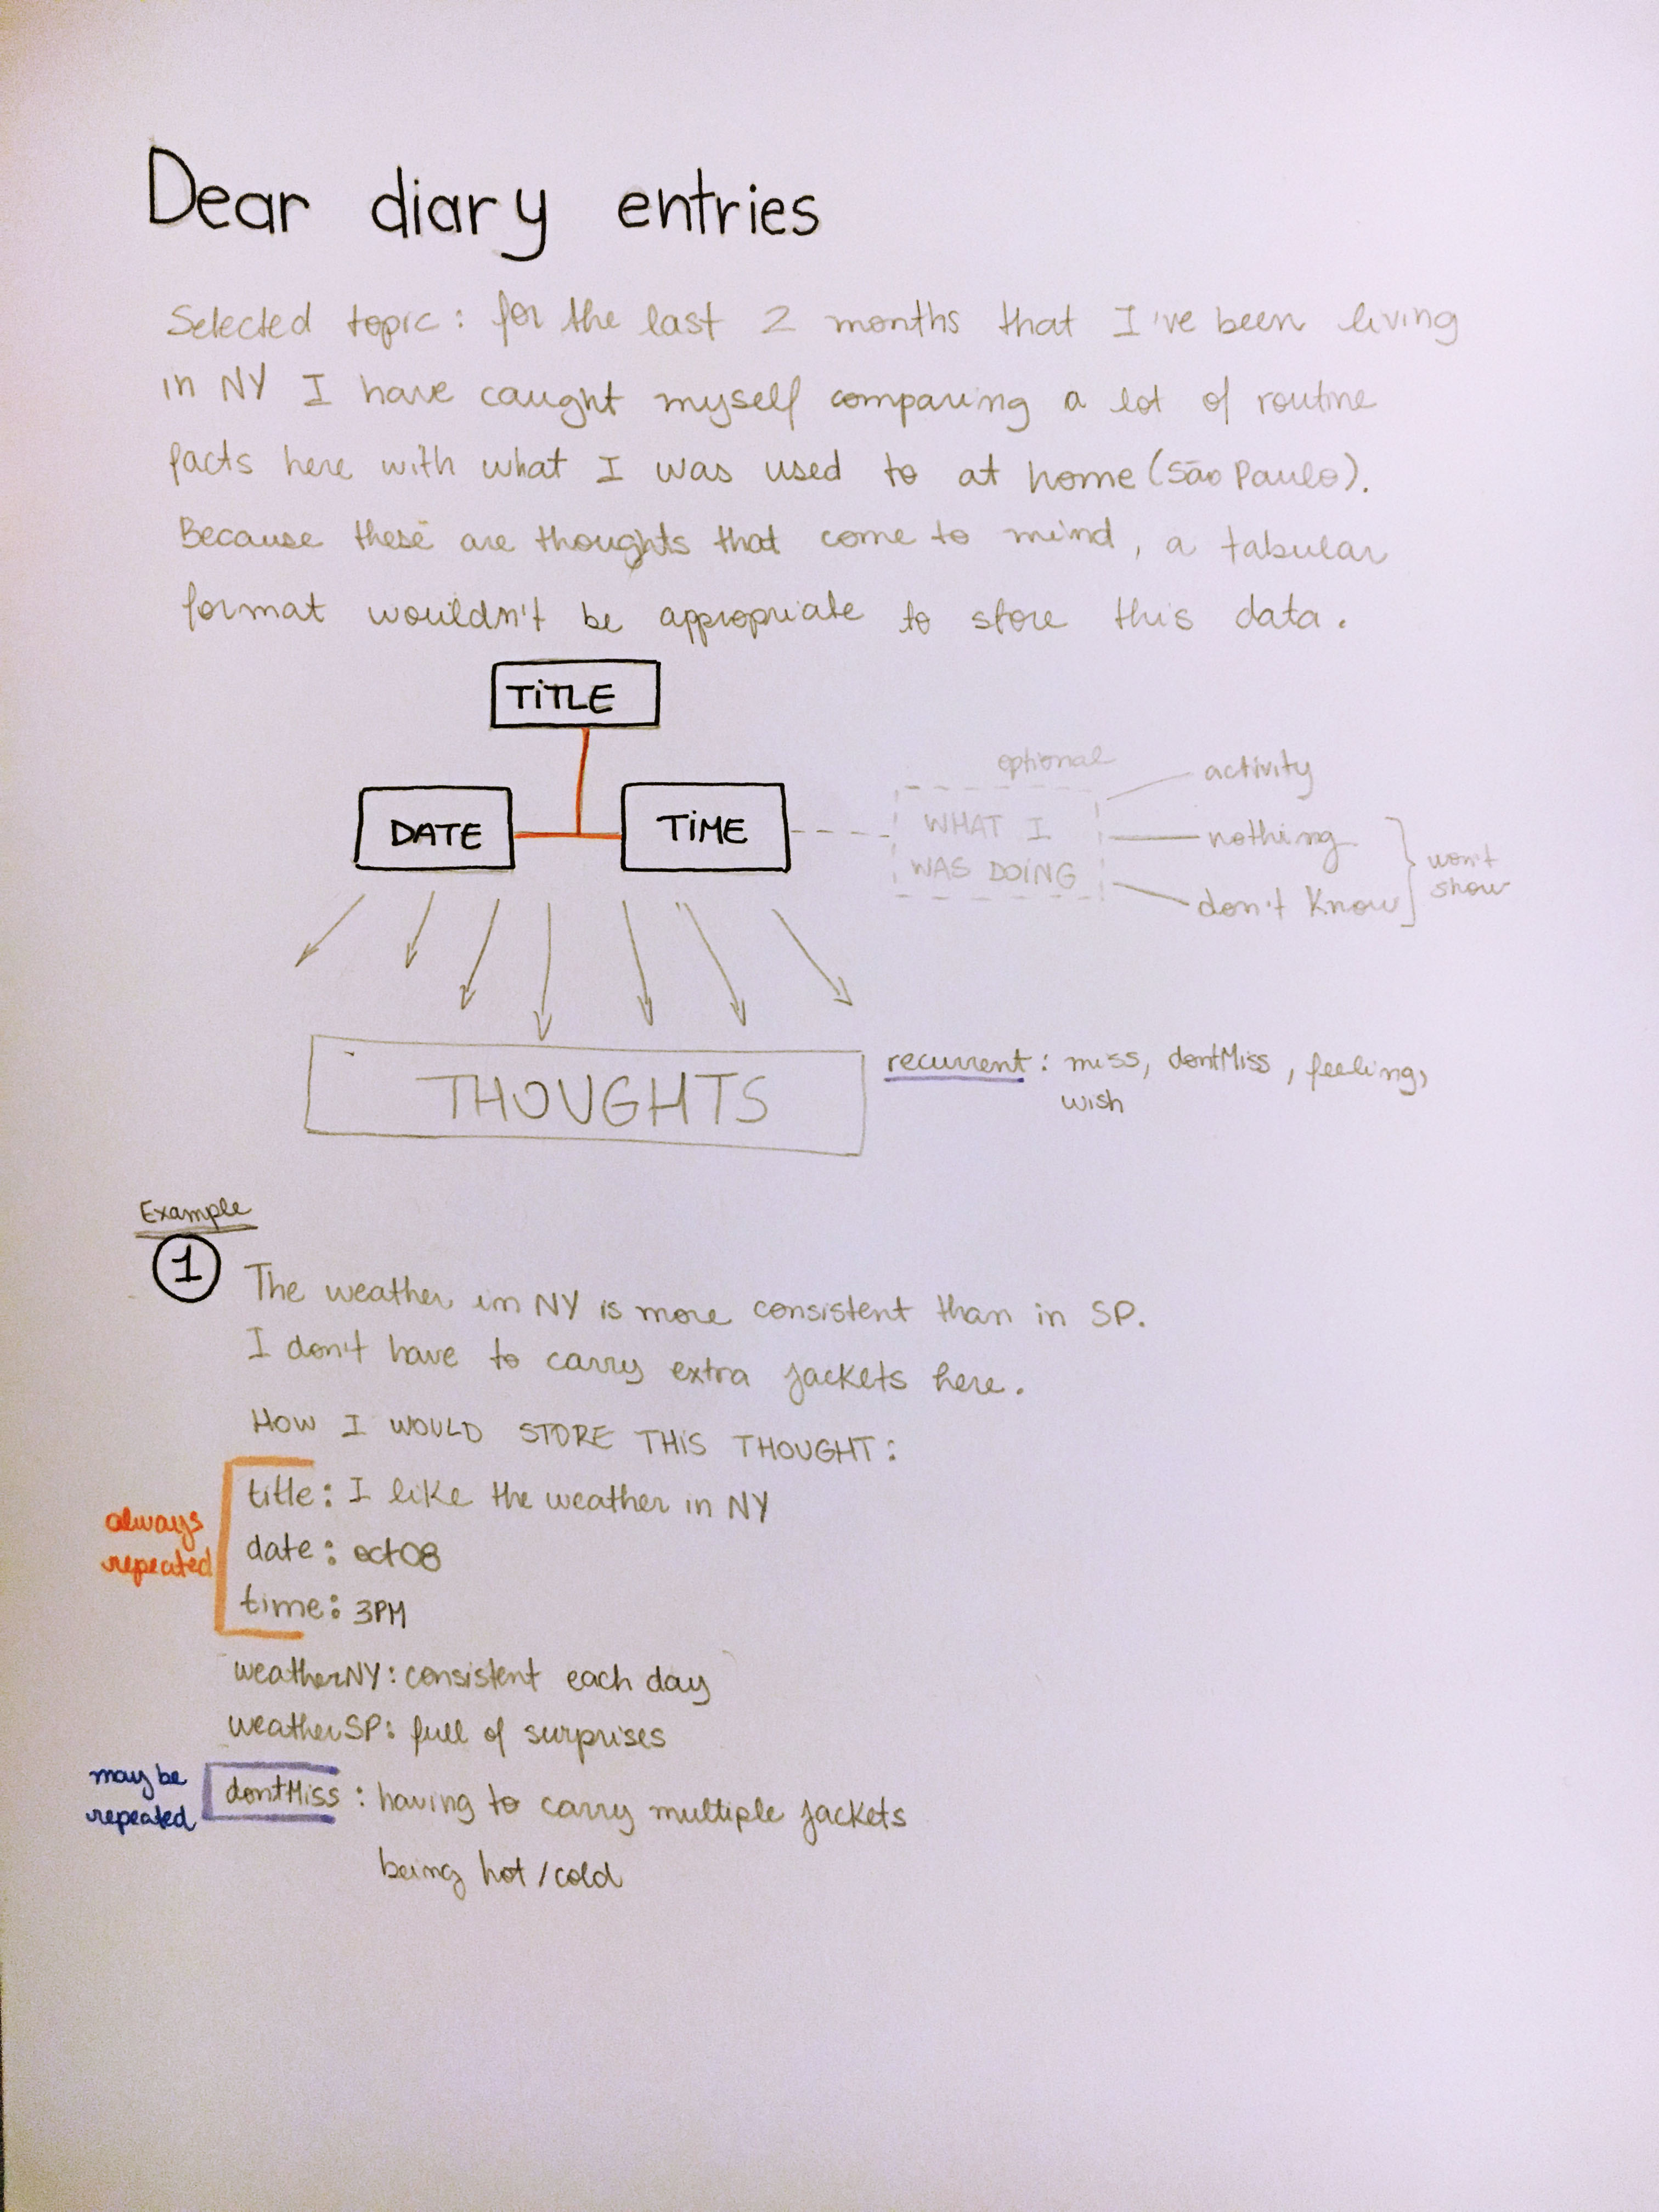 Dear diary entries
Selected topic: for the last 2 months that I've been living
in NY I have caught myself comparing a lot of routine
facts here with what I was used to at home (São Paulo).
Because these are thoughts that come to mind, a tabular
format wouldn't be appropriate to store this data.
TITLE
DATE
TIME
optional
WHAT I
WAS DOING
activity
nothing
don't know
won't
show
THOUGHTS
recurrent: miss, dontMiss, feeling,
wish
Example
1
The weather in NY is more consistent than in SP.
I don't have to carry extra jackets here.
HOW I WOULD STORE THIS THOUGHT:
always
repeated
title: I like the weather in NY
date: oct08
time: 3PM
weatherNY: consistent each day
weatherSP: full of surprises
may be
repeated
dontMiss: having to carry multiple jackets
being hot/cold